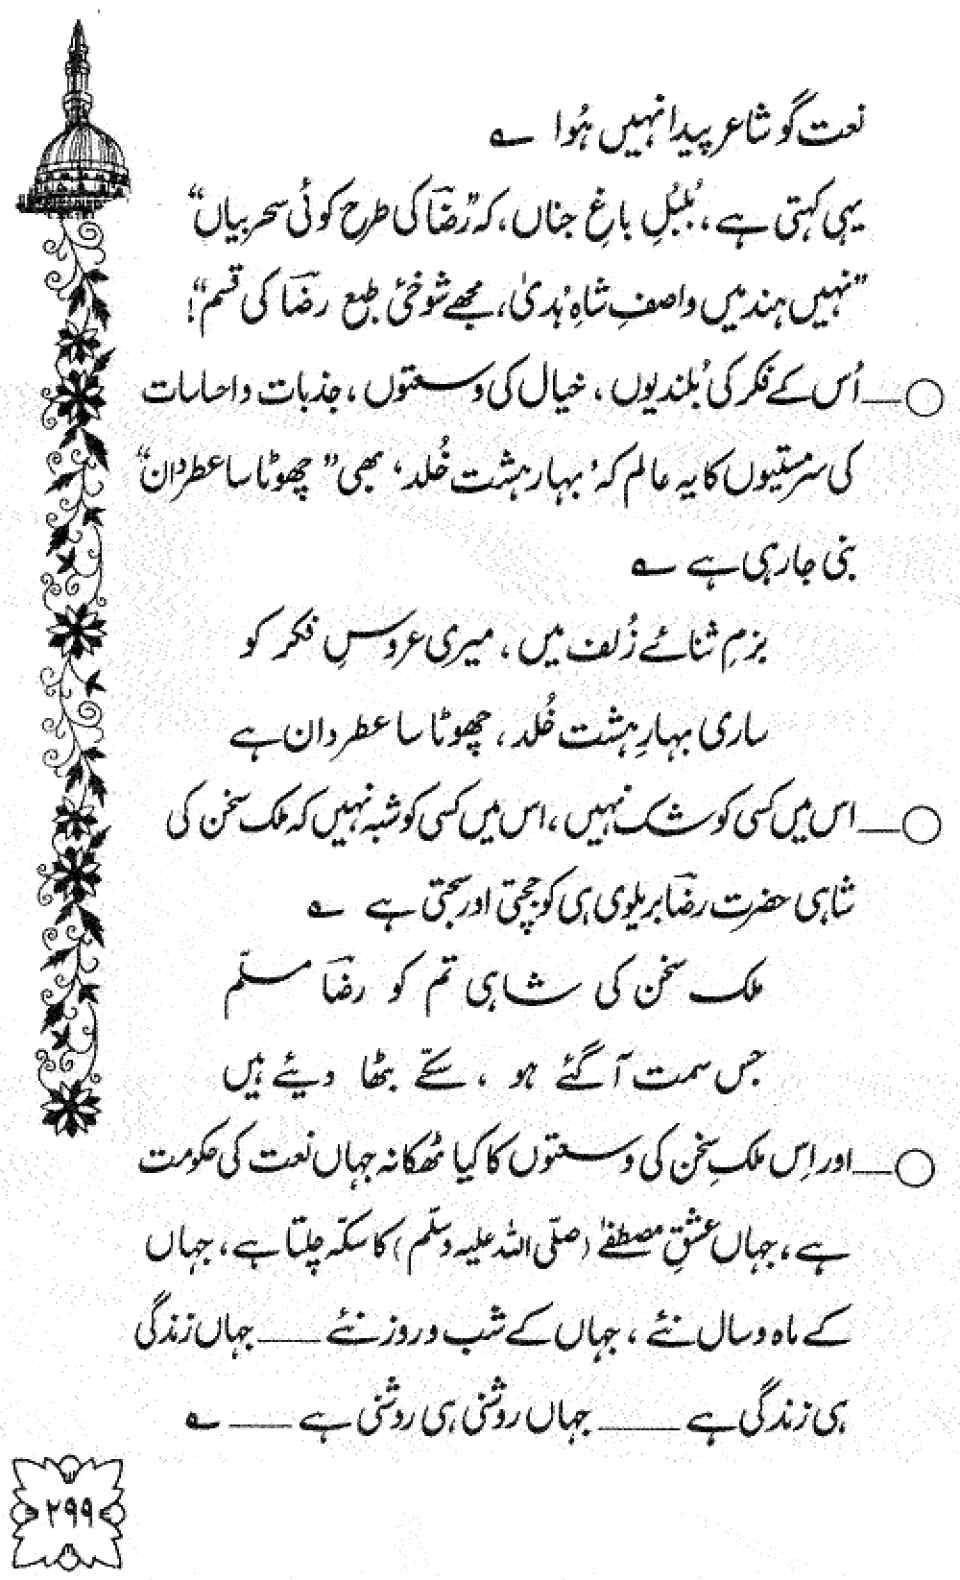 نعت گو شاعر پیدا نہیں ہُوا ؎
یہی کہتی ہے، بُلبُلِ باغِ جناں، کہ رضاؔ کی طرح کوئی سحر بیاں“
”نہیں ہند میں واصفِ شاہِ ہُدیٰ، مجھے شوخئ طبع رضاؔ کی قسم“!
○— اُس کے فکر کی بُلندیوں، خیال کی وسعتوں، جذبات و احساسات
کی سرمستیوں کا یہ عالم کہ ’بہارِ ہشت خُلد‘ بھی ”چھوٹا سا عطردان“
بنی جا رہی ہے ؎
بزمِ ثنائے زُلف میں، میری عروسِ فکر کو
ساری بہارِ ہشت خُلد، چھوٹا سا عطردان ہے
○— اس میں کسی کو شک نہیں، اس میں کسی کو شبہ نہیں کہ ملک سخن کی
شاہی حضرت رضاؔ بریلوی ہی کو جچتی اور سجتی ہے ؎
ملک سخن کی شاہی تم کو رضاؔ مسلّم
جس سمت آ گئے ہو، سکّے بٹھا دیئے ہیں
○— اور اِس ملکِ سخن کی وسعتوں کا کیا ٹھکانہ جہاں نعت کی حکومت
ہے، جہاں عشقِ مصطفےٰ (صلّی اللہ علیہ وسلّم) کا سکّہ چلتا ہے، جہاں
کے ماہ و سال نئے، جہاں کے شب و روز نئے — جہاں زندگی
ہی زندگی ہے — جہاں روشنی ہی روشنی ہے — ؎
۲۹۹